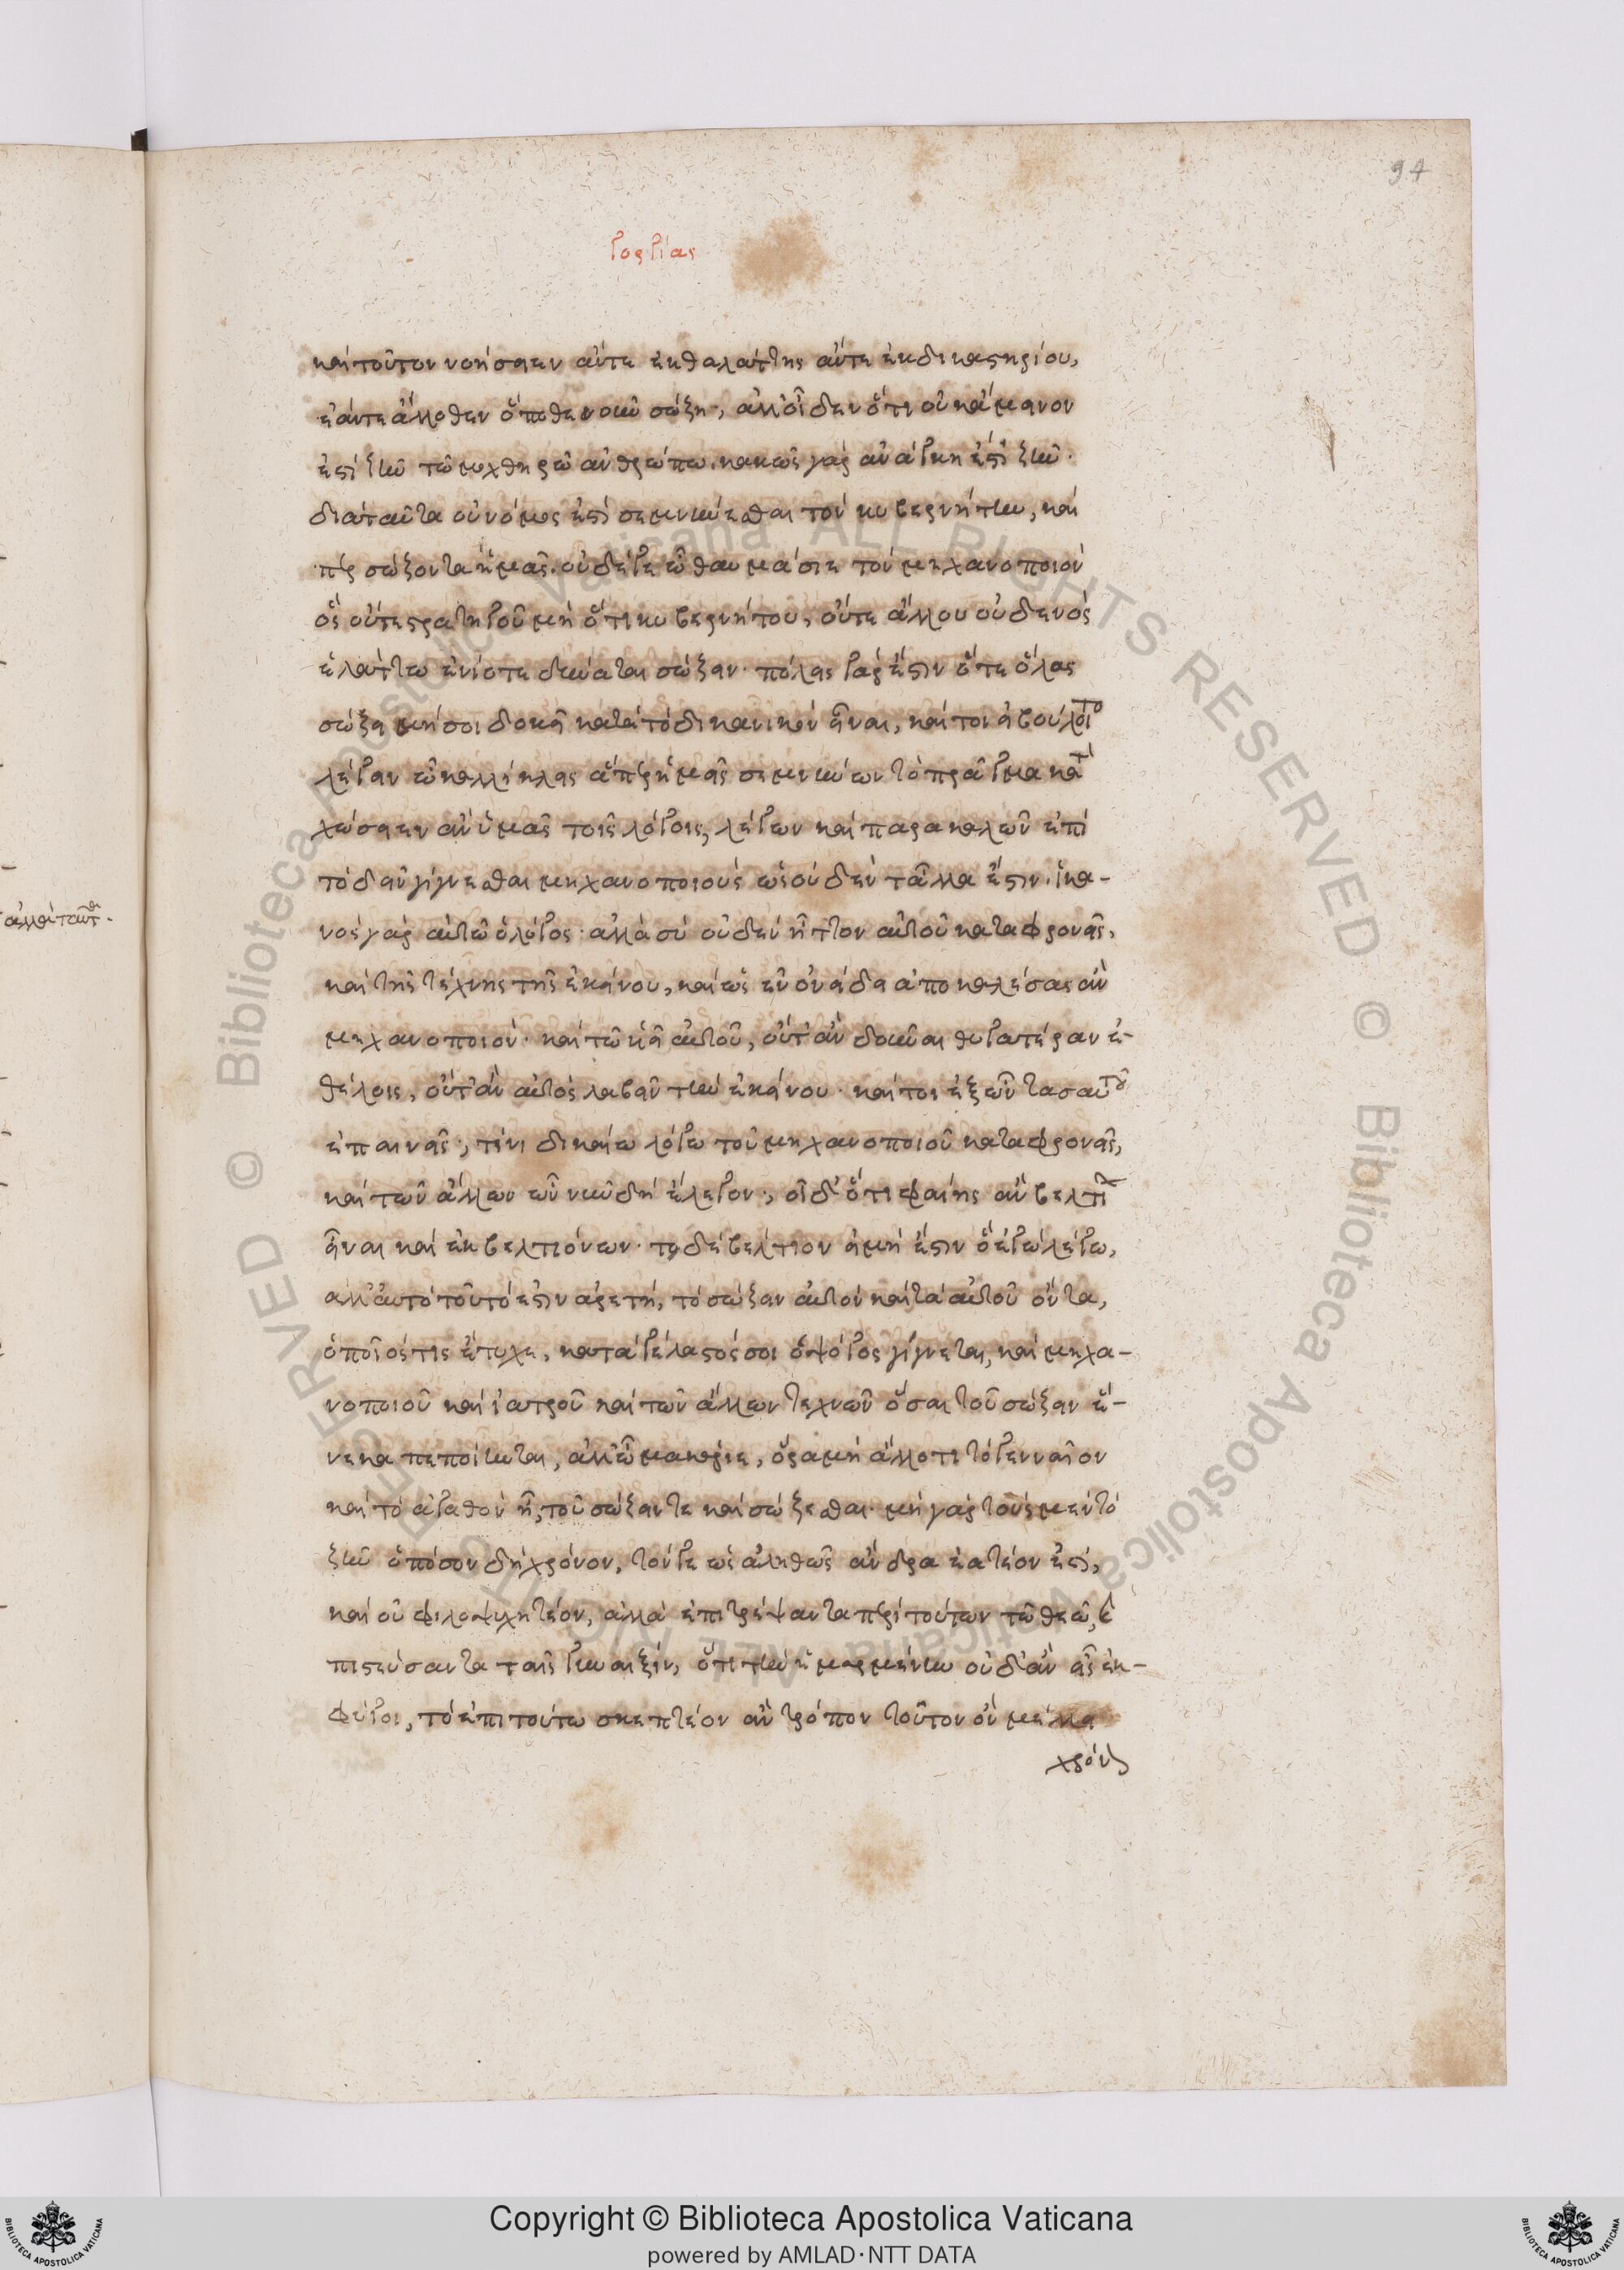 94
γοργίας
καὶ τοῦτον νοήσειεν αὔτε ἐκ θαλάττης αὔτε ἐκ δικαστηρίου,
ἐάντε ἄλλοθεν ὅποθεν οὖν σώζῃ, ἀλλ' οἶδεν ὅτι οὐκ ἄμεινον
ἐστὶ ζῆν τῷ μοχθηρῷ ἀνθρώπῳ. κακῶς γὰρ ἀνάγκη ἐστὶ ζῆν.
διὰ ταῦτα οὐ νόμος ἐστὶ σεμνύνεσθαι τὸν κυβερνήτην, καὶ
περ σώζοντα ἡμᾶς. οὐδέ γε ὦ θαυμάσιε τὸν μηχανοποιὸν
ὃς οὔτε στρατηγοῦ μὴ ὅτι κυβερνήτου, οὔτε ἄλλου οὐδενὸς
ἐλάττω ἐνίοτε δύναται σώζειν· πόλεις γὰρ ἔστιν ὅτε ὅλας
σώζει μή σοι δοκεῖ κατὰ τὸ δικανικὸν εἶναι, καίτοι εἰ βούλοιτο
λέγειν ὦ καλλίκλεις ἅπερ ἡμεῖς σεμνύνων τὸ πρᾶγμα κατα
χώσειεν ἂν ὑμᾶς τοῖς λόγοις, λέγων καὶ παρακαλῶν ἐπὶ
τὸ δεῖν γίγνεσθαι μηχανοποιοὺς ὡς οὐδὲν τἆλλα ἔστιν. ἱκα-
νὸς γὰρ αὐτῷ ὁ λόγος· ἀλλὰ σὺ οὐδὲν ἧττον αὐτοῦ καταφρονεῖς,
καὶ τῆς τέχνης τῆς ἐκείνου, καὶ ὡς ἐν ὀνείδει ἀποκαλέσαις ἂν
μηχανοποιόν· καὶ τῷ υἱεῖ αὐτοῦ, οὔτ' ἂν δοῦναι θυγατέραν ἐ-
θέλοις, οὔτ' ἂν αὐτὸς λαβεῖν τὴν ἐκείνου· καίτοι ἐξ ὧν τὰ σαυτοῦ
ἐπαινεῖς, τίνι δικαίῳ λόγῳ τοῦ μηχανοποιοῦ καταφρονεῖς,
καὶ τῶν ἄλλων ὧν νῦν δὴ ἔλεγον, οἶδ' ὅτι φαίης ἂν βελτίων
εἶναι καὶ ἐκ βελτιόνων· τὸ δὲ βέλτιον εἰ μή ἔστιν ὃ ἐγὼ λέγω,
ἀλλ' αὐτὸ τοῦτό ἐστιν ἀρετή, τὸ σώζειν αὐτὸν καὶ τὰ αὐτοῦ ὄντα,
ὁποῖός τις ἔτυχε, καταγέλαστός σοι ὁ ψόγος γίγνεται, καὶ μηχα-
νοποιοῦ καὶ ἰατροῦ καὶ τῶν ἄλλων τεχνῶν ὅσαι τοῦ σώζειν ἕ-
νεκα πεποίηνται, ἀλλ' ὦ μακάριε, ὅρα μὴ ἄλλο τι τὸ γενναῖον
καὶ τὸ ἀγαθὸν ᾖ, τοῦ σώζειν τε καὶ σώζεσθαι· μὴ γὰρ τοὺς μὲν τὸ
ζῆν ὁπόσον δὴ χρόνον, τόν γε ὡς ἀληθῶς ἄνδρα ἐατέον ἐστί,
καὶ οὐ φιλοψυχητέον, ἀλλὰ ἐπιτρέψαντα περὶ τούτων τῷ θεῷ, καὶ
πιστεύσαντα ταῖς γυναιξίν, ὅτι τὴν εἱμαρμένην οὐδ' ἂν εἷς ἐκ-
φύγοι, τὸ ἐπὶ τούτῳ σκεπτέον ἂν τρόπον τοῦτον ὃν μέλλει
χρόνον
Copyright © Biblioteca Apostolica Vaticana
powered by AMLAD·NTT DATA
BIBLIOTECA APOSTOLICA VATICANA
BIBLIOTECA APOSTOLICA VATICANA
© Biblioteca Apostolica Vaticana ALL RIGHTS RESERVED
© Biblioteca Apostolica Vaticana ALL RIGHTS RESERVED